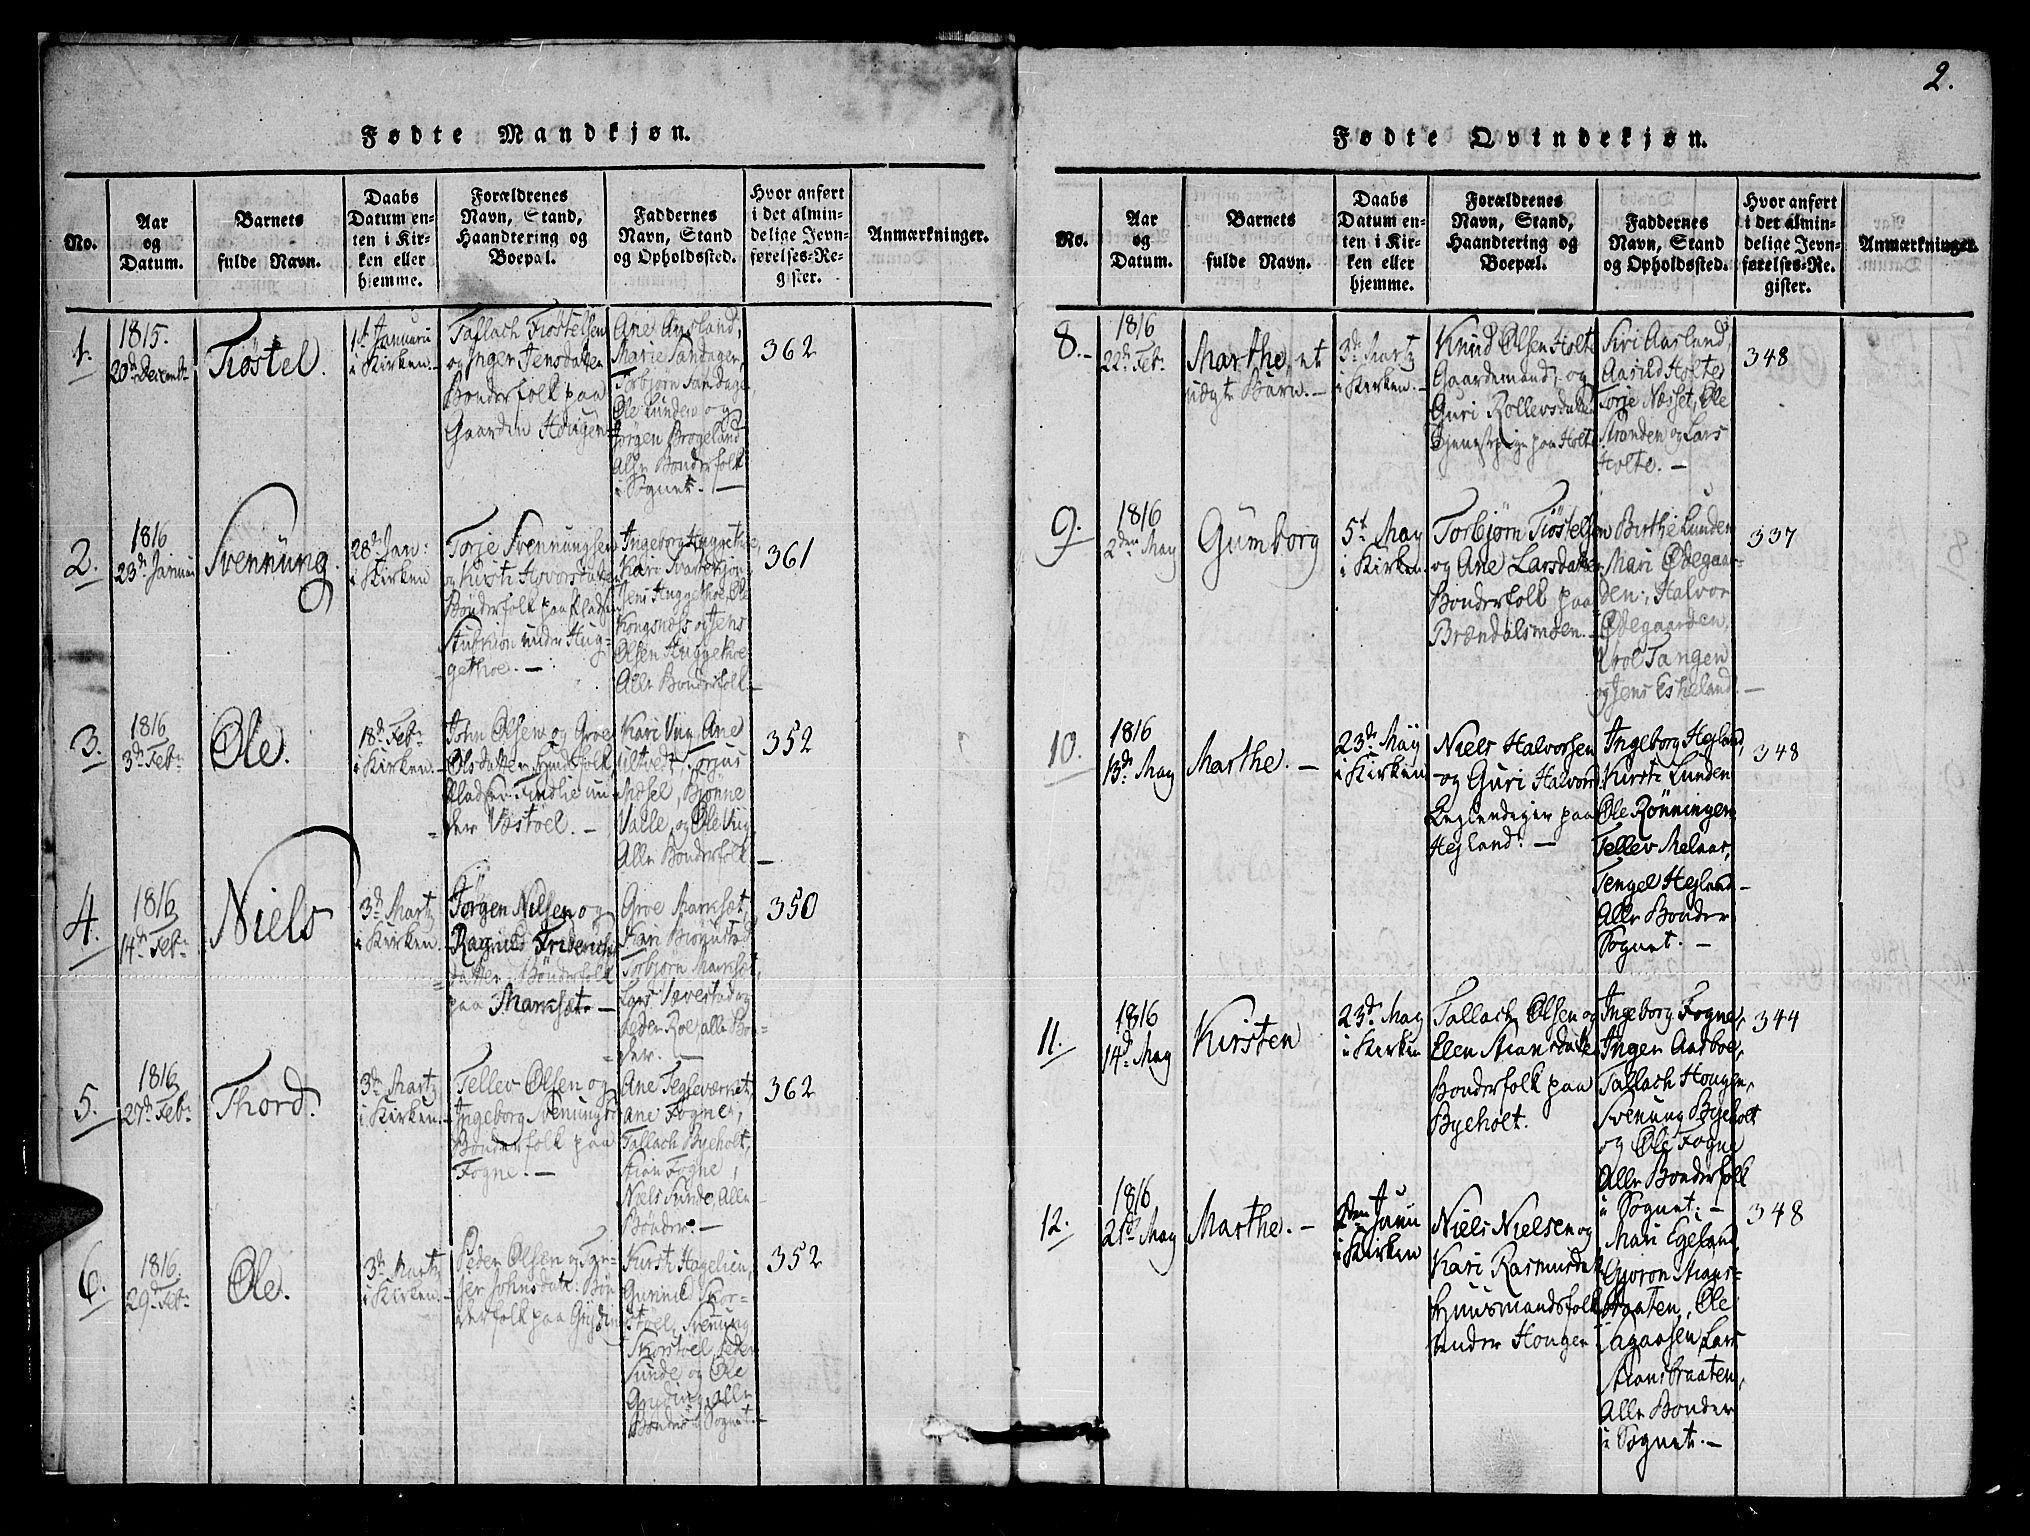 2.
Fødte Mandkjøn.
No.
Aar
og
Datum.
Barnets
fulde Navn.
Daabs
Datum en-
ten i Kir-
ken eller
hjemme.
Forældrenes
Navn, Stand,
Haandtering og
Boepæl.
Faddernes
Navn, Stand
og Opholdssted.
Hvor anført
i det almin-
delige Jevn-
førelses-Re-
gister.
Anmærkninger.
1.
1815.
20de Decembr
Tiøstel.
1st Januari
i Kirken.
Tallach Tiøstelsen
og Inger Jensdatter
Bonderfolk paa
Gaarden Hougen
Ane Aasland,
Marie Sandager,
Torbjørn Sandager
Ole Lunden og
Jørgen Brogeland
Alle Bonderfolk
i Sognet. —
362
2.
1816
23de Januari
Svennung.
28de Jan:
i Kirken
Torje Svennungsen
og Kirsti Halvorsdatter
Bønderfolk paa Pladsen
under Hug-
gethoe. —
Ingeborg Huggethoe
Kari
Jens Huggethoe, Ole
Kongsnæss og Jens
Olsen Huggethoe
Alle Bonderfolk —
361
3.
1816
3de Febr
Ole.
18de Febr
i Kirken. —
John Olsen og Groe
Olsdatter
Pladsen un-
der Vastøel. —
Kari Ane
Torjus
Mæsel, Bjønne
Valle, og Ole
Alle Bonderfolk —
352
4.
1816
14de Febr
Niels
3de Martz
i Kirken.
Jørgen Nilsen og
Ragnild Friderichs-
datter. Bønderfolk
paa Marksæt. —
Groe Marksæt,
Kari Biønnstad
Torbjørn Marksæt,
Lars Væverstad og
Peder Roe, alle Bon-
der. —
350
5.
1816
27de Febr
Thord.
3de Martz
i Kirken.
Tellev Olsen og
Ingeborg Svenungsd
Bonderfolk paa
Fogne. —
Ane Tegleværket,
Ane Fogne,
Tallach Byeholt,
Stian Fogne,
Niels Sunde, Alle
Bønder. —
362
6.
1816
29de Febr
Ole.
3de Martz
i Kirken. —
Peder Olsen og In-
ger Johnsdatt: Bøn-
derfolk paa
Kirsti Hagelien,
Gunnild Skor-
støel, Svenung
Skorstøel, Peder
Sunde og Ole
alle
Bønder i Sognet. —
352
Fødte Qvindekjøn.
No.
Aar
og
Datum.
Barnets
fulde Navn.
Daabs
Datum en-
ten i Kir-
ken eller
hjemme.
Forældrenes
Navn, Stand,
Haandtering og
Boepæl.
Faddernes
Navn, Stand
og Opholdssted.
Hvor anført
i det almin-
delige Jevn-
førelses-Re-
gister.
Anmærkninger.
8. —
1816
22de Febr.
Marthe, et
uægte Barn. —
3de Martz
i Kirken. —
Knud Olsen Holte
Gaardemand, og
Guri Rollevsdatter
Tjenestepige paa Holte
Siri Aarland,
Aasild Holte
Torje Næsset, Ole
Stranden og Lars
Holte. —
348
9.
1816
2den May
Gumborg
5t May
i Kirken.
Torbjørn Tiøstelsen
og Ane Larsdatter
Bonderfolk paa
Brændalsmoen. —
Birthe Lunden
Mari Ødegaar-
den, Halvor
Ødegaarden
Tangen
og Jens Eskeland. —
337
10.
1816
13de May
Marthe. —
23de May
i Kirken
Niels Halvorsen
og Guri Halvorsd
paa
Hegland. —
Ingeborg Hegland,
Kirsti Lunden
Ole Rønningen
Tellev Melaas,
Tengel Hegland —
Alle Bonder
Sognet. —
348
11.
1816
14de May
Kirsten
23de May
i Kirken
Tallach Olsen og
Elen Stiansdatter
Bonderfolk paa
Byeholt.
Ingeborg Fogne,
Inger Aasboe,
Tallach Hougen,
Svenung Byeholt
og Ole Fogne
Alle Bonderfolk
i Sognet. —
344
12.
1816
21de May
Marthe. —
2den Juni
i Kirken
Niels Nielsen og
Kari Rasmusdatter
Huusmandsfolk
under Hougen
Mari Egeland,
Gjoron Stians-
braaten, Ole
Lagaasen, Lars
Stiansbraaten,
Alle Bonder
i Sognet. —
348